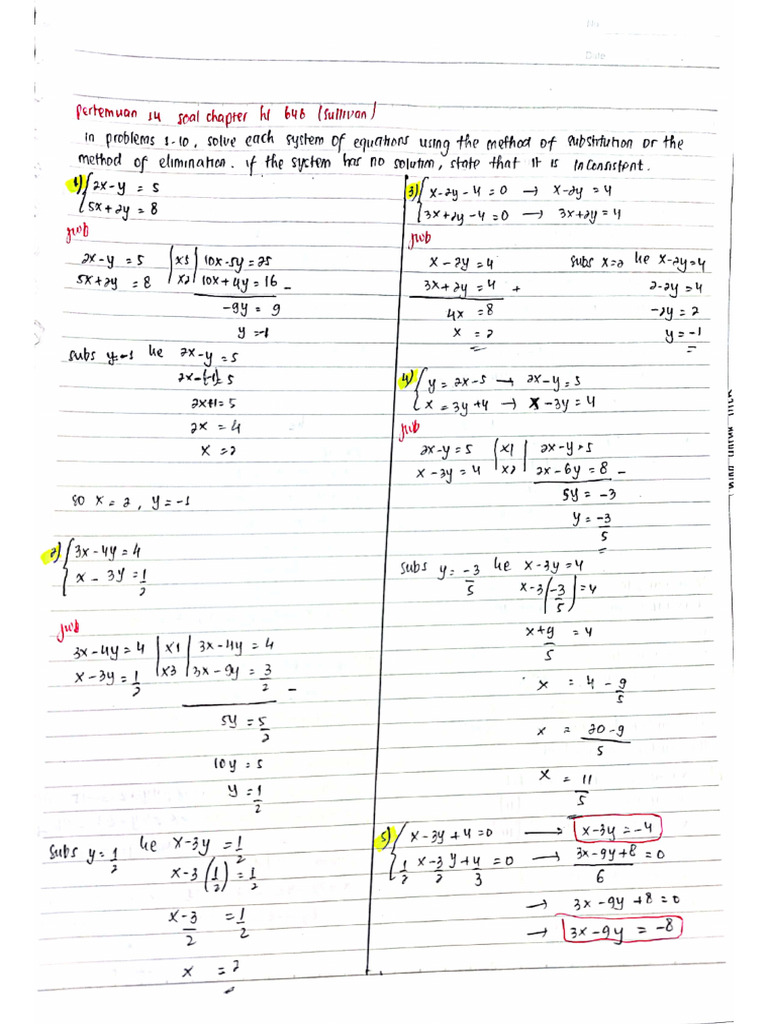 No
Date
Pertemuan 14 soal chapter hl 646 (Sullivan)
In problems 1-10, solve each system of equations using the method of substitution or the
method of elimination. if the system has no solution, state that it is inconsistent.
1) { 2x-y = 5
5x+2y = 8
jwb
2x-y = 5 | x5 | 10x-5y = 25
5x+2y = 8 | x2 | 10x+4y = 16 -
-9y = 9
y = -1
subs y=-1 ke 2x-y = 5
2x-(-1) = 5
2x+1 = 5
2x = 4
x = 2
so x = 2, y = -1
2) { 3x-4y = 4
x - 3y = 1/2
jwb
3x-4y = 4 | x1 | 3x-4y = 4
x-3y = 1/2 | x3 | 3x-9y = 3/2 -
5y = 5/2
10y = 5
y = 1/2
subs y = 1/2 ke x-3y = 1/2
x-3(1/2) = 1/2
x-3/2 = 1/2
x = 2
3) { x-2y-4 = 0 → x-2y = 4
3x+2y-4 = 0 → 3x+2y = 4
jwb
x-2y = 4
3x+2y = 4 +
4x = 8
x = 2
subs x=2 ke x-2y=4
2-2y=4
-2y=2
y=-1
4) { y = 2x-5 → 2x-y = 5
x = 3y+4 → x-3y = 4
jwb
2x-y = 5 | x1 | 2x-y = 5
x-3y = 4 | x2 | 2x-6y = 8 -
5y = -3
y = -3/5
subs y = -3/5 ke x-3y = 4
x-3(-3/5) = 4
x+9/5 = 4
x = 4 - 9/5
x = 20-9/5
x = 11/5
5) { x-3y+4=0 → x-3y = -4
1/2 x - 3/2 y + 4/3 = 0 → 3x-9y+8/6 = 0
→ 3x-9y+8 = 0
→ 3x-9y = -8